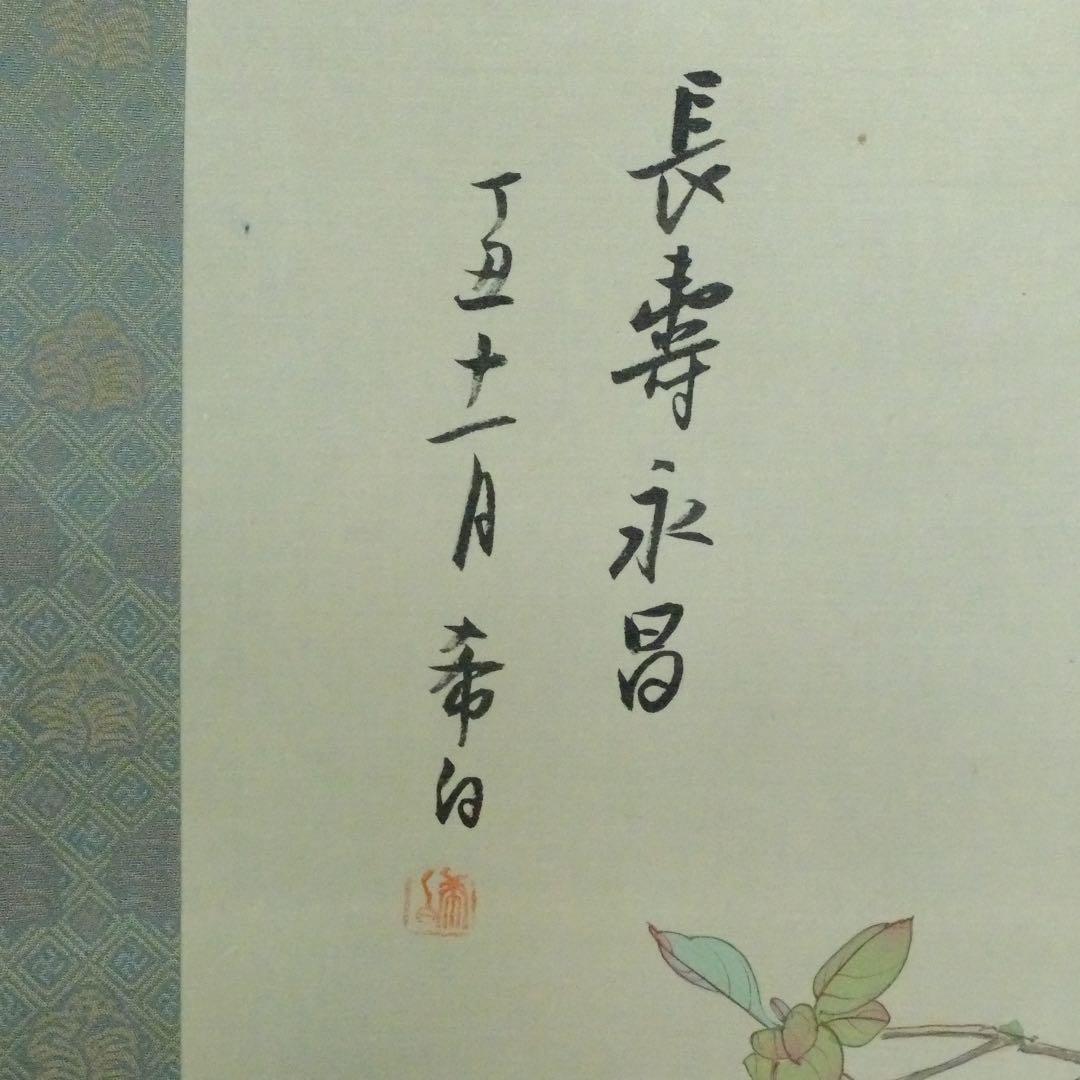 長壽永昌
丁丑十一月 希白